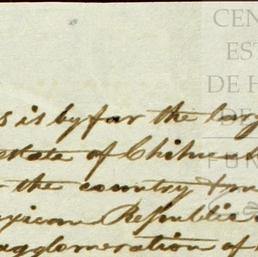 CEN
EST
DE H
DE
s is by far the larg
estate of Chihua
the country
exican Republic
agglomeration of